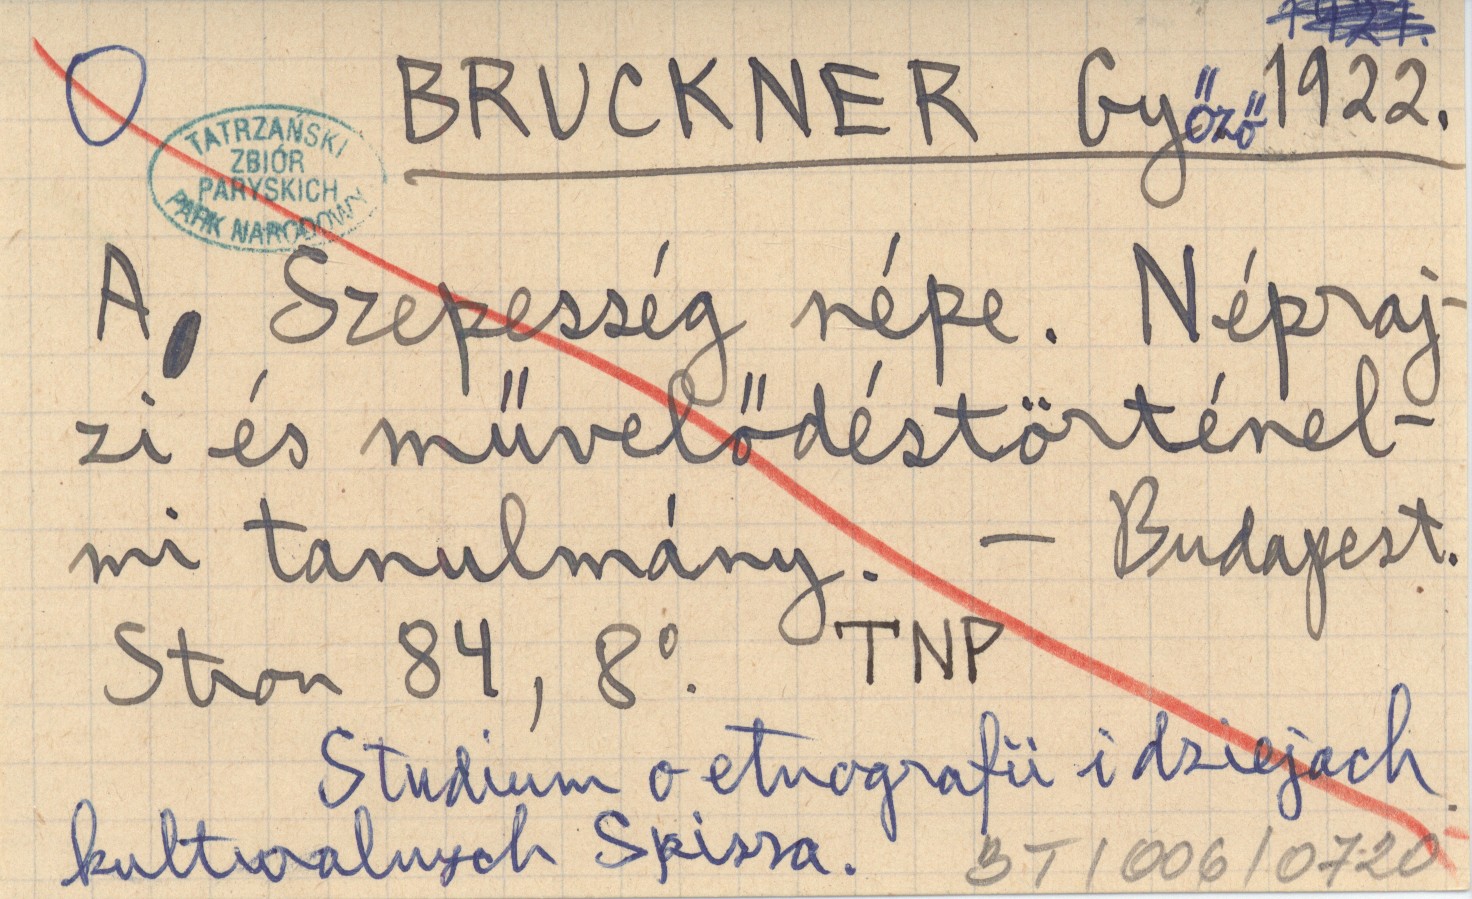 BRUCKNER Győző 1922.
TATRZAŃSKI
ZBIÓR
PARYSKICH
PARK NARODOWY
A Szepesség népe. Népraj-
zi és művelődéstörténel-
mi tanulmány. — Budapest.
Stron 84, 8°. TNP
Studium o etnografii i dziejach
kulturalnych Spisza.
BT/006/0720